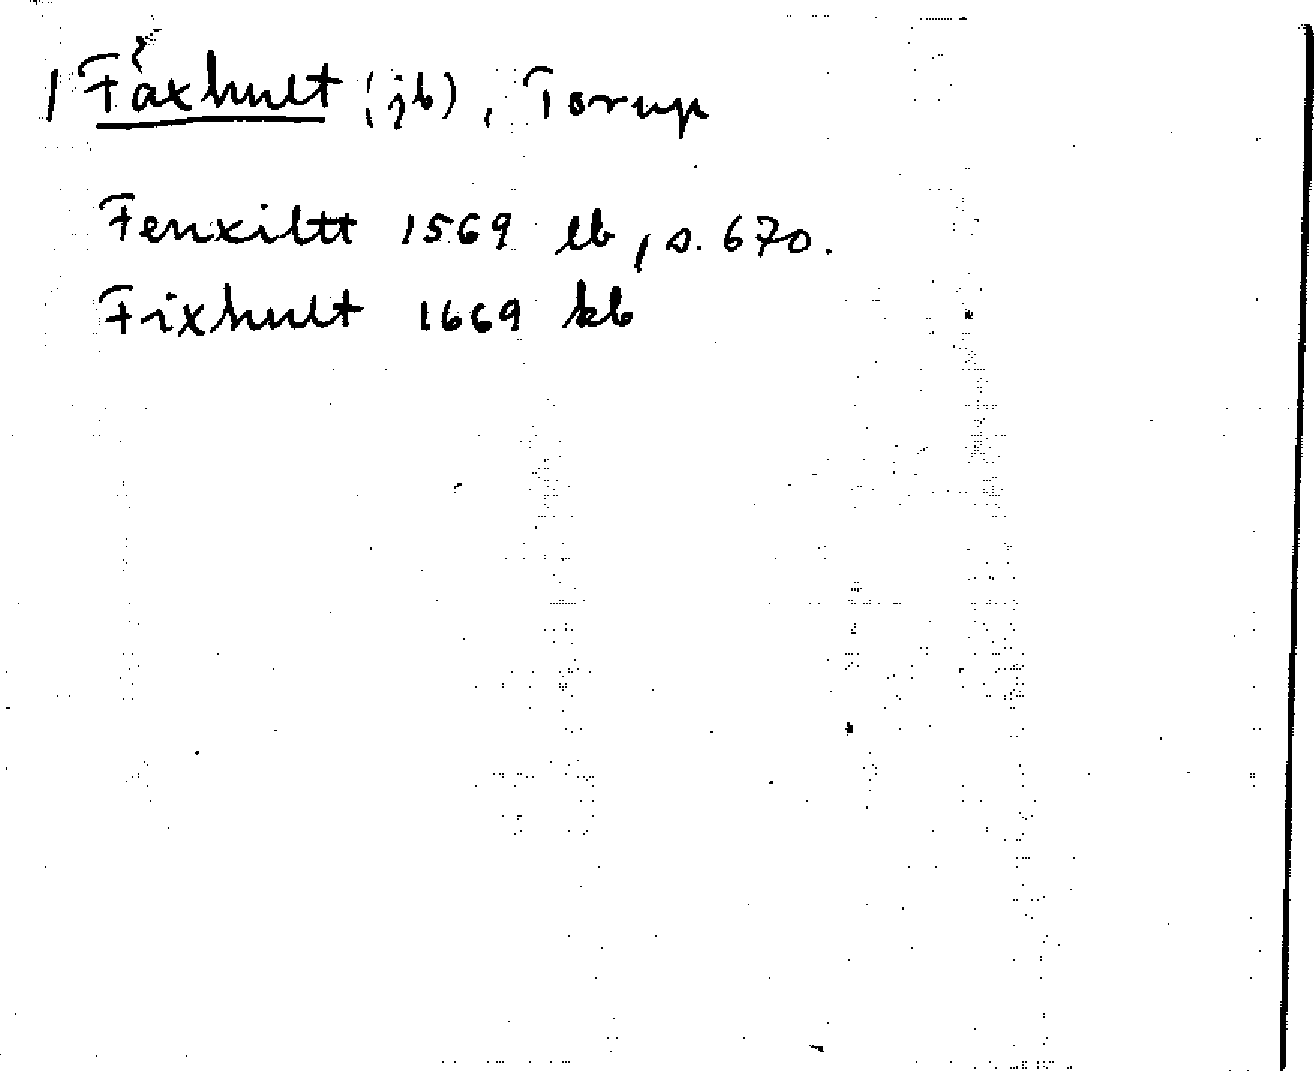 1 Fäxhult (jb), Torup
Fenxiltt 1569 lb, s. 670.
Fixhult 1669 kb